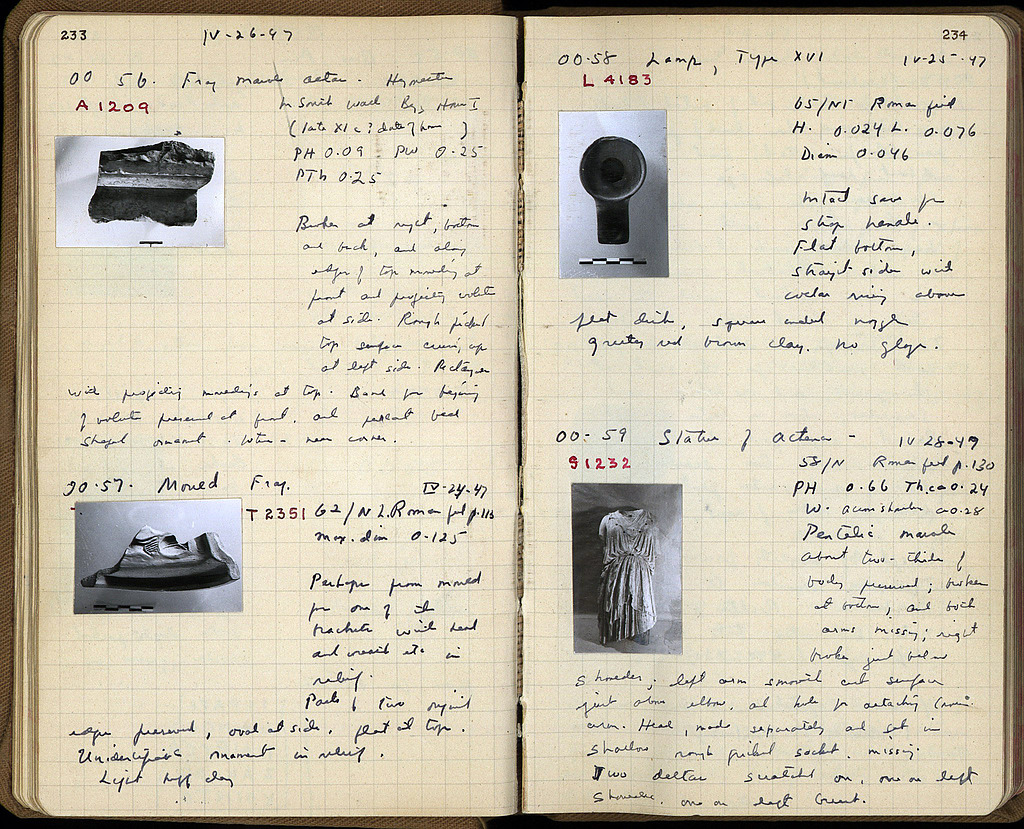 233
IV-26-47
OO 56. Frag marble altar. Hymettian
A 1209
in South wall Bg, House I
(late XI c? date of house)
PH 0.09 PW 0.25
PTh 0.25
Broken at right, bottom
and back, and along
edge of top moulding at
front and projecting volute
at side. Rough picked
top surface curving up
at left side. Rectangular
with projecting mouldings at top. Band for beginning
of volute preserved at front, and
shaped ornament near corner.
OO.57. Mould Frag.
IV-24-47
T 2351
62/N L. Roman fill p.113
max. dim 0.125
Perhaps from mould
for one of the
brackets with head
and wreath etc in
relief.
Parts of two original
edges preserved, oval at side, flat at top.
Unidentifiable ornament in relief.
Light buff clay
234
OO.58 Lamp, Type XVI
IV-25-47
L 4183
65/NΓ Roman fill
H. 0.024 L. 0.076
Diam 0.046
Intact save for
strap handle.
Flat bottom,
straight sides with
collar rising above
flat disk, square ended nozzle
gritty red brown clay. No glaze.
OO-59 Statue of Athena -
IV 28-47
S 1232
58/N Roman fill p.130
PH 0.66 Th. ca 0.24
W. across shoulders ca 0.28
Pentelic marble
About two-thirds of
body preserved; broken
at bottom, and both
arms missing; right
broken just below
shoulder; left arm smooth cut surface
just above elbow, and hole for attaching
arm. Head, made separately and set in
shallow rough picked socket, missing.
Two deltas scratched on, one on left
shoulder, one on left breast.